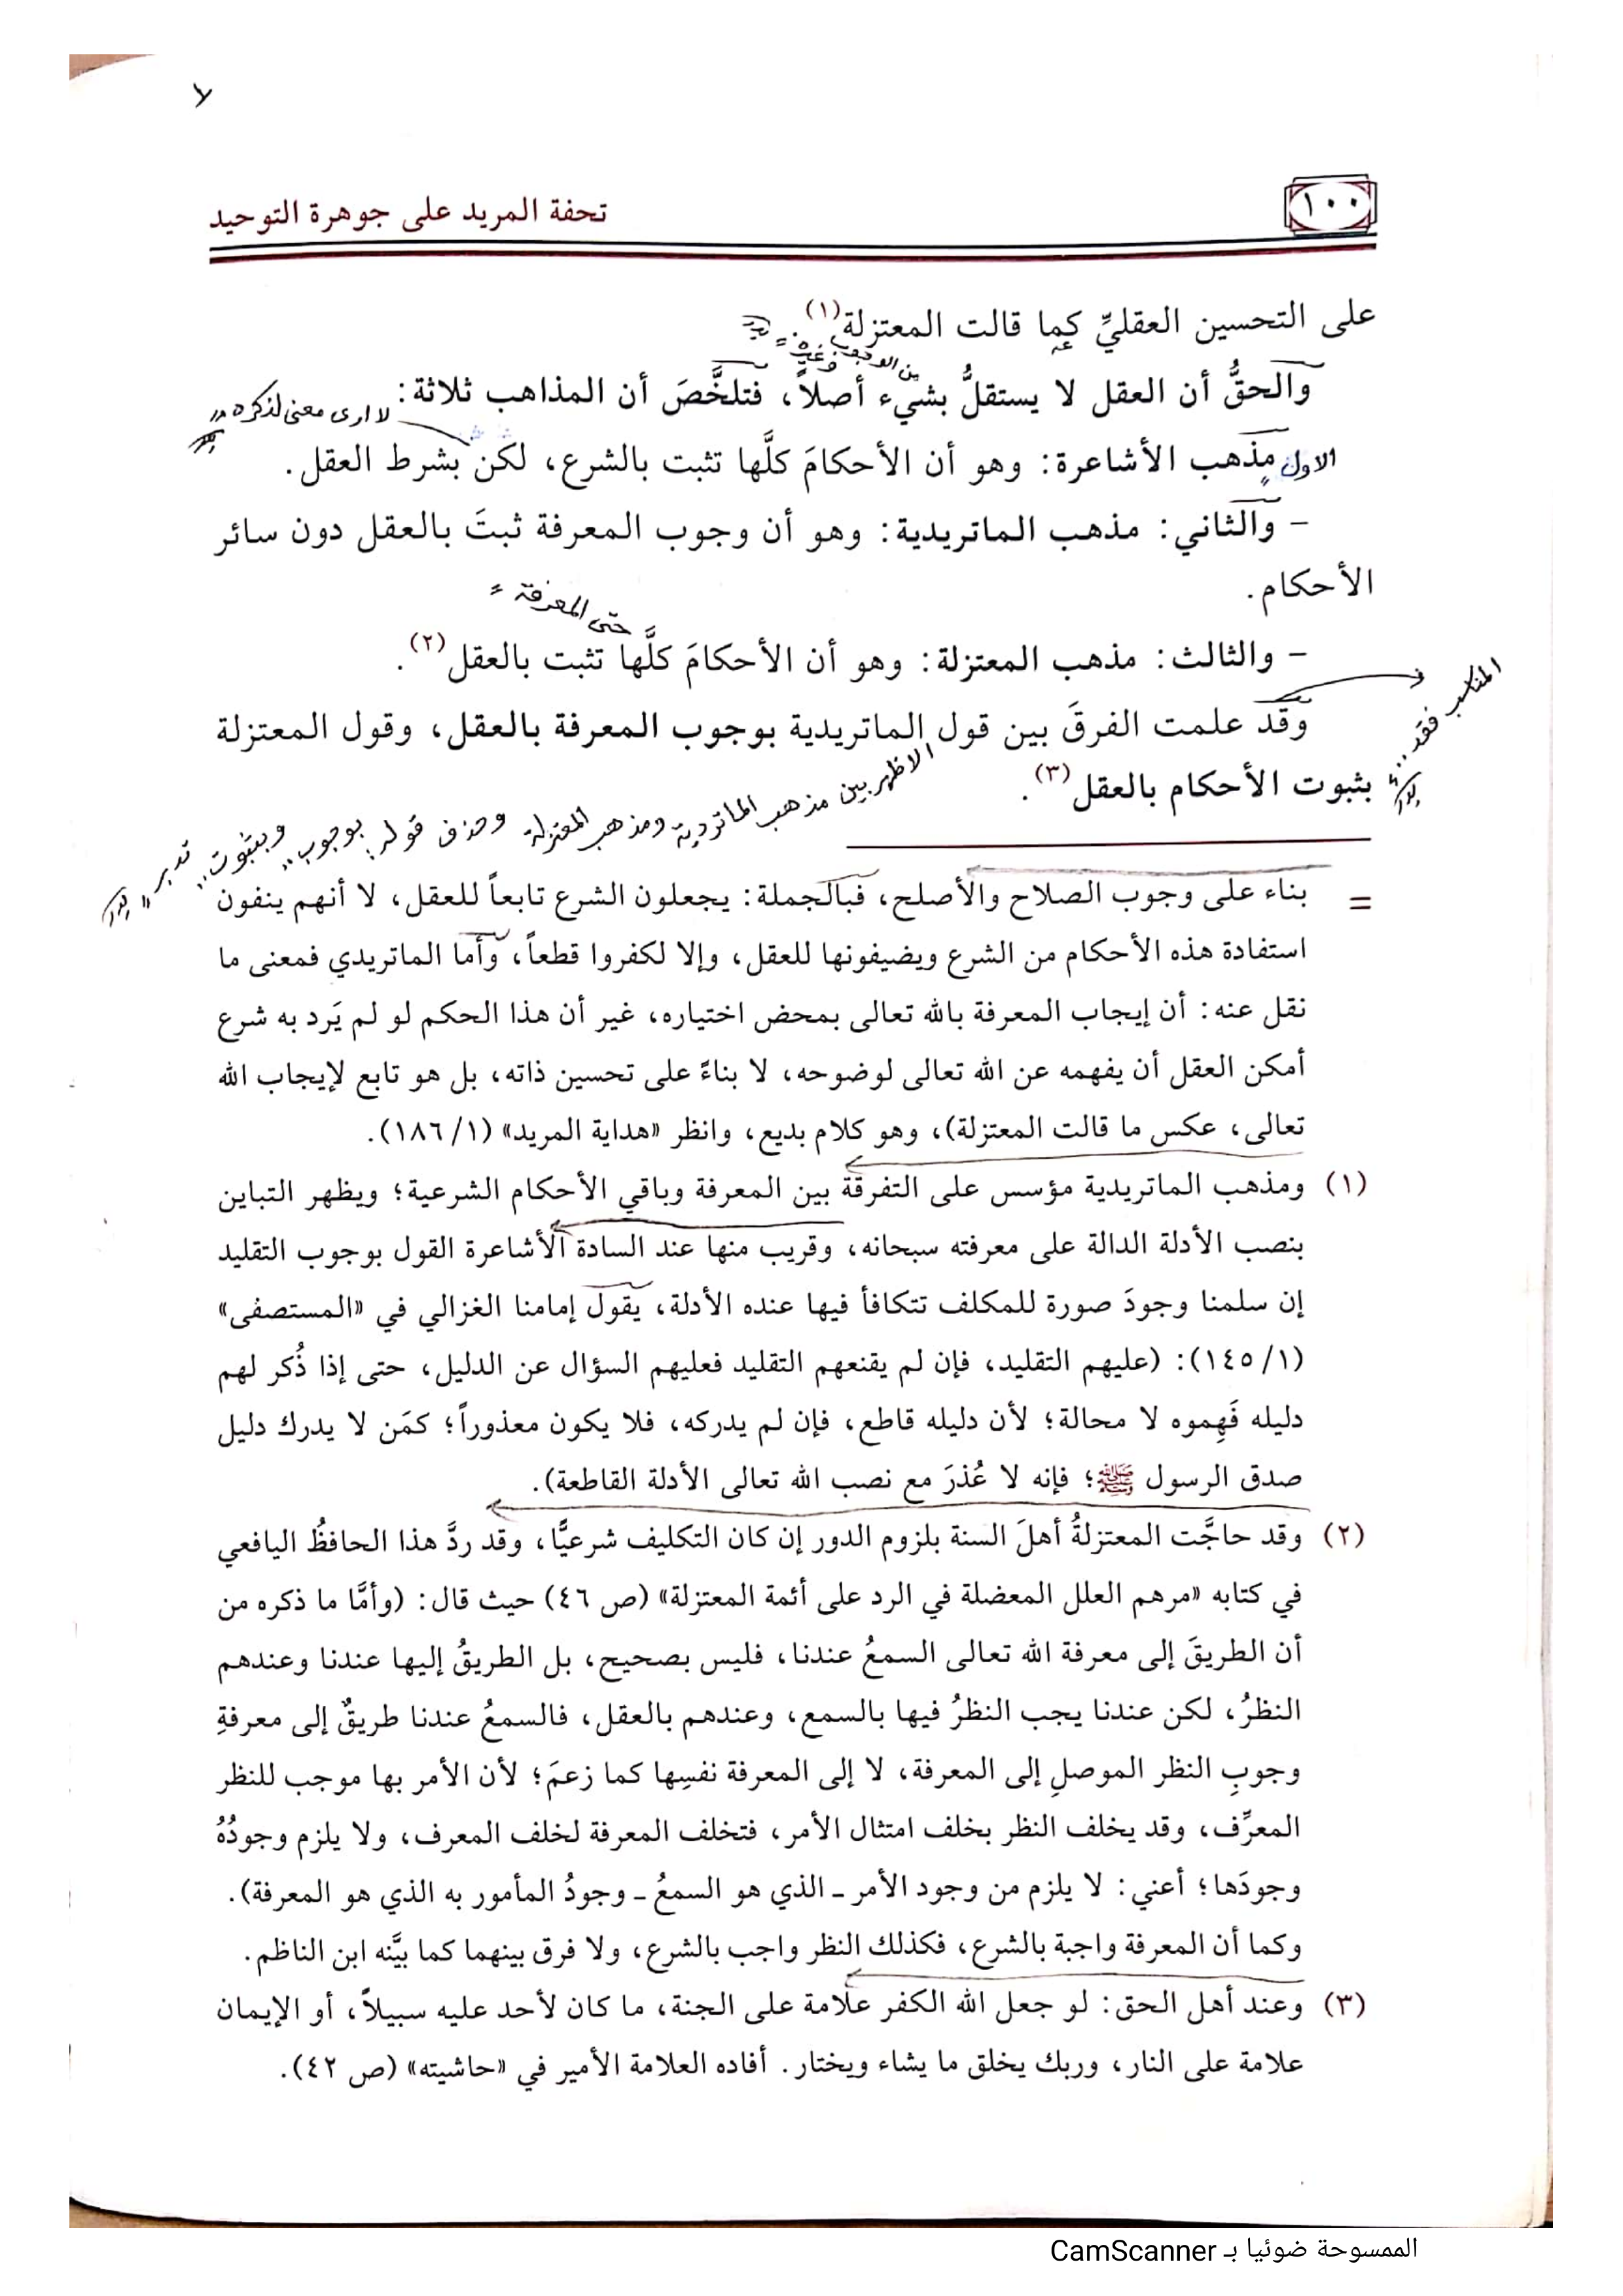 ١٠٠
تحفة المريد على جوهرة التوحيد
على التحسين العقليِّ كما قالت المعتزلة(١).
من الوجوب وغيره =
والحقُّ أن العقل لا يستقلُّ بشيء أصلاً، فتلخَّصَ أن المذاهب ثلاثة:
لا ارى معنى لذكره
الاول مذهب الأشاعرة: وهو أن الأحكامَ كلَّها تثبت بالشرع، لكن بشرط العقل.
- والثاني: مذهب الماتريدية: وهو أن وجوب المعرفة ثبتَ بالعقل دون سائر
الأحكام.
حتى المعرفة =
- والثالث: مذهب المعتزلة: وهو أن الأحكامَ كلَّها تثبت بالعقل(٢).
المناسب فقد
وقد علمت الفرقَ بين قول الماتريدية بوجوب المعرفة بالعقل، وقول المعتزلة
بثبوت الأحكام بالعقل(٣).
الاظهر بين مذهب الماتردية ومذهب المعتزلة وحذف قوله: بوجوب,, وبثبوت,, تدبر
= بناء على وجوب الصلاح والأصلح، فبالجملة: يجعلون الشرع تابعاً للعقل، لا أنهم ينفون
استفادة هذه الأحكام من الشرع ويضيفونها للعقل، وإلا لكفروا قطعاً، وأما الماتريدي فمعنى ما
نقل عنه: أن إيجاب المعرفة بالله تعالى بمحض اختياره، غير أن هذا الحكم لو لم يَرد به شرع
أمكن العقل أن يفهمه عن الله تعالى لوضوحه، لا بناءً على تحسين ذاته، بل هو تابع لإيجاب الله
تعالى، عكس ما قالت المعتزلة)، وهو كلام بديع، وانظر «هداية المريد» (١/ ١٨٦).
(١) ومذهب الماتريدية مؤسس على التفرقة بين المعرفة وباقي الأحكام الشرعية؛ ويظهر التباين
بنصب الأدلة الدالة على معرفته سبحانه، وقريب منها عند السادة الأشاعرة القول بوجوب التقليد
إن سلمنا وجودَ صورة للمكلف تتكافأ فيها عنده الأدلة، يقول إمامنا الغزالي في «المستصفى»
(١/ ١٤٥): (عليهم التقليد، فإن لم يقنعهم التقليد فعليهم السؤال عن الدليل، حتى إذا ذُكر لهم
دليله فَهِموه لا محالة؛ لأن دليله قاطع، فإن لم يدركه، فلا يكون معذوراً؛ كمَن لا يدرك دليل
صدق الرسول ﷺ؛ فإنه لا عُذرَ مع نصب الله تعالى الأدلة القاطعة).
(٢) وقد حاجَّت المعتزلةُ أهلَ السنة بلزوم الدور إن كان التكليف شرعيًّا، وقد ردَّ هذا الحافظُ اليافعي
في كتابه «مرهم العلل المعضلة في الرد على أئمة المعتزلة» (ص ٤٦) حيث قال: (وأمَّا ما ذكره من
أن الطريقَ إلى معرفة الله تعالى السمعُ عندنا، فليس بصحيح، بل الطريقُ إليها عندنا وعندهم
النظرُ، لكن عندنا يجب النظرُ فيها بالسمع، وعندهم بالعقل، فالسمعُ عندنا طريقٌ إلى معرفةِ
وجوبِ النظر الموصلِ إلى المعرفة، لا إلى المعرفة نفسِها كما زعمَ؛ لأن الأمر بها موجب للنظر
المعرِّف، وقد يخلف النظر بخلف امتثال الأمر، فتخلف المعرفة لخلف المعرف، ولا يلزم وجودُهُ
وجودَها؛ أعني: لا يلزم من وجود الأمر ـ الذي هو السمعُ ـ وجودُ المأمور به الذي هو المعرفة).
وكما أن المعرفة واجبة بالشرع، فكذلك النظر واجب بالشرع، ولا فرق بينهما كما بيَّنه ابن الناظم.
(٣) وعند أهل الحق: لو جعل الله الكفر علامة على الجنة، ما كان لأحد عليه سبيلاً، أو الإيمان
علامة على النار، وربك يخلق ما يشاء ويختار. أفاده العلامة الأمير في «حاشيته» (ص ٤٢).
الممسوحة ضوئيا بـ CamScanner